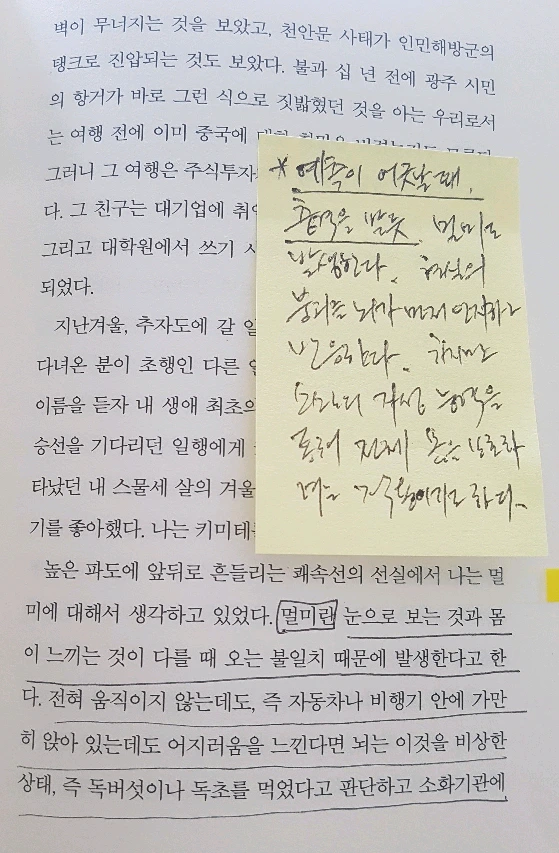 벽이 무너지는 것을 보았고, 천안문 사태가 인민해방군의
탱크로 진압되는 것도 보았다. 불과 십 년 전에 광주 시민
의 항거가 바로 그런 식으로 짓밟혔던 것을 아는 우리로서
는 여행 전에 이미 중국에
그러니 그 여행은 주식투자
다. 그 친구는 대기업에 취업
그리고 대학원에서 쓰기 시
되었다.
지난겨울, 추자도에 갈 일
다녀온 분이 초행인 다른
이름을 듣자 내 생애 최초의
승선을 기다리던 일행에게
타났던 내 스물세 살의 겨울
기를 좋아했다. 나는 키미테
* 예측이 어긋날 때,
충격을 받듯, 멀미도
발생한다. 현실의
뇌가 먼저 인지하고
반응한다. 하지만
능력을
통해 전체
한다.
높은 파도에 앞뒤로 흔들리는 쾌속선의 선실에서 나는 멀
미에 대해서 생각하고 있었다. 멀미란 눈으로 보는 것과 몸
이 느끼는 것이 다를 때 오는 불일치 때문에 발생한다고 한
다. 전혀 움직이지 않는데도, 즉 자동차나 비행기 안에 가만
히 앉아 있는데도 어지러움을 느낀다면 뇌는 이것을 비상한
상태, 즉 독버섯이나 독초를 먹었다고 판단하고 소화기관에